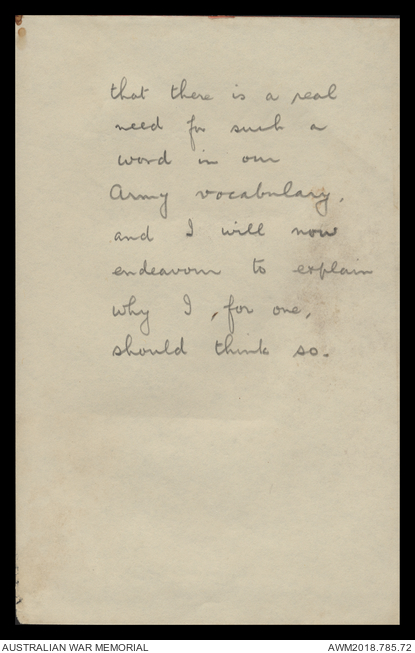 that there is a real
need for such a
word in our
Army vocabulary,
and I will now
endeavour to explain
why I, for one,
should think so.
AUSTRALIAN WAR MEMORIAL AWM2018.785.72